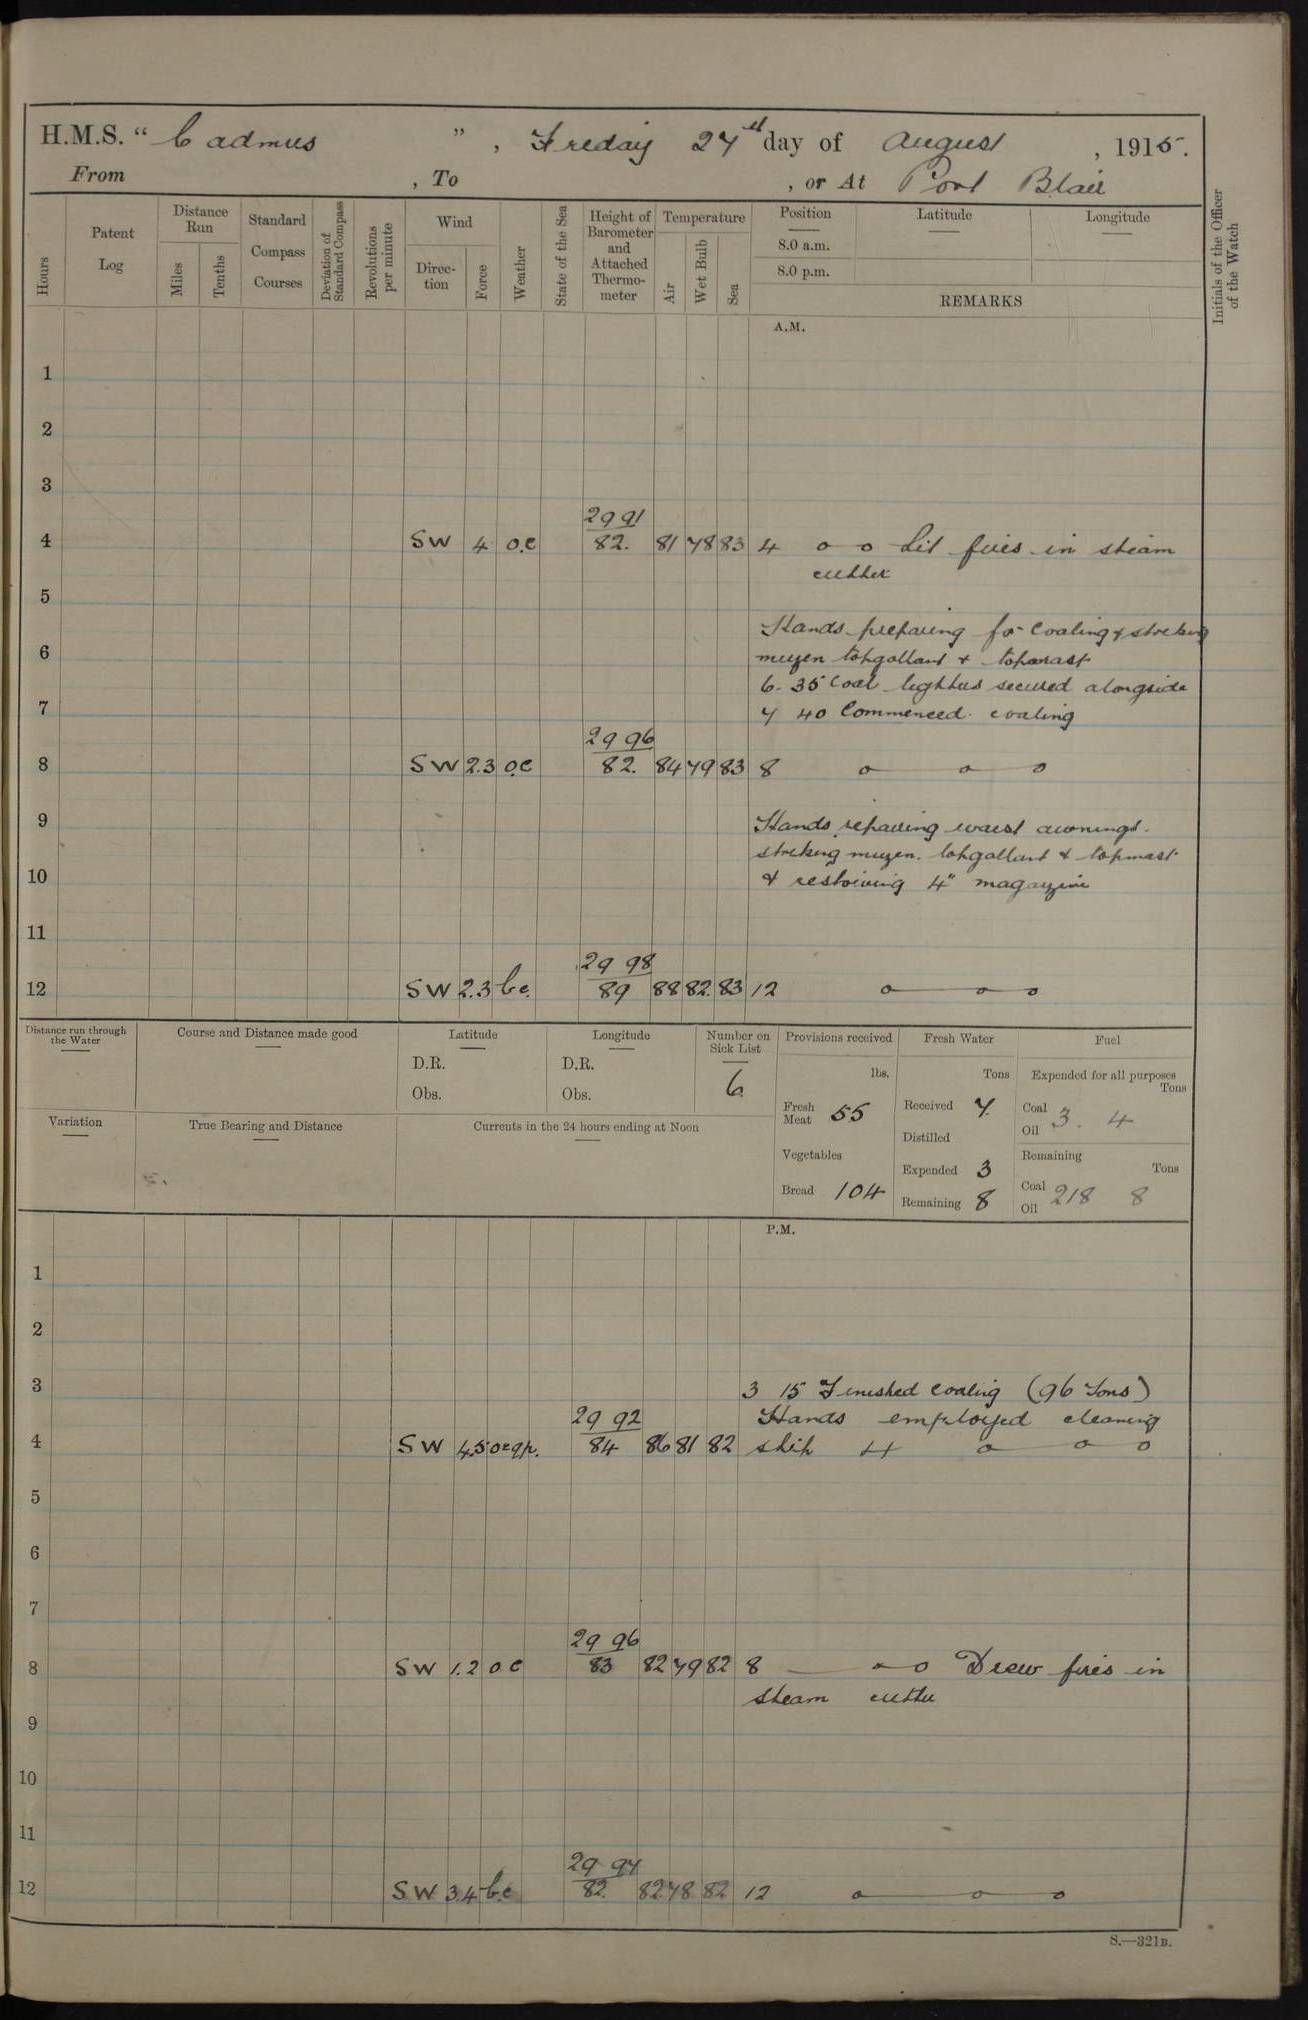 H.M.S. “ Cadmus ” , Friday 27th day of August , 1915.
From , To , or At Port Blair
Hours
Patent Log
Distance Run
Miles
Tenths
Standard Compass Courses
Deviation of Standard Compass
Revolutions per minute
Wind
Direction
Force
Weather
State of the Sea
Height of Barometer and Attached Thermometer
Temperature
Air
Wet Bulb
Sea
Position
8.0 a.m.
8.0 p.m.
Latitude
Longitude
REMARKS
Initials of the Officer of the Watch
A.M.
1
2
3
29 91
4 SW 4 o.c 82. 81 78 83 4 o o Lit fires in steam
cutter
5
Hands preparing for coaling & striking
6 mizen topgallant & topmast
6. 35 Coal lighters secured alongside
7 7 40 Commenced coaling
29 96
8 SW 2.3 o.c 82. 84 79 83 8 o o o
9 Hands repairing waist awnings.
striking mizen topgallant & topmast
10 & restowing 4" magazine
11
29 98
12 SW 2.3 b.c. 89 88 82. 83 12 o o o
Distance run through the Water
Course and Distance made good
Latitude
D.R.
Obs.
Longitude
D.R.
Obs.
Number on Sick List
6
Provisions received
lbs.
Fresh Meat 55
Vegetables
Bread 104
Fresh Water
Tons
Received 7
Distilled
Expended 3
Remaining 8
Fuel
Expended for all purposes
Tons
Coal 3. 4
Oil
Remaining
Tons
Coal 218 8
Oil
Variation
True Bearing and Distance
Currents in the 24 hours ending at Noon
P.M.
1
2
3 3 15 Finished coaling (96 Tons)
29 92 Hands employed cleaning
4 SW 4.5 o.c.q.p. 84 86 81 82 ship 4 o o o
5
6
7
29 96
8 SW 1.2 o c 83 82 79 82 8 o o Drew fires in
steam cutter
9
10
11
29 97
12 SW 3.4 b.c 82. 82 78 82 12 o o o
S.—321B.